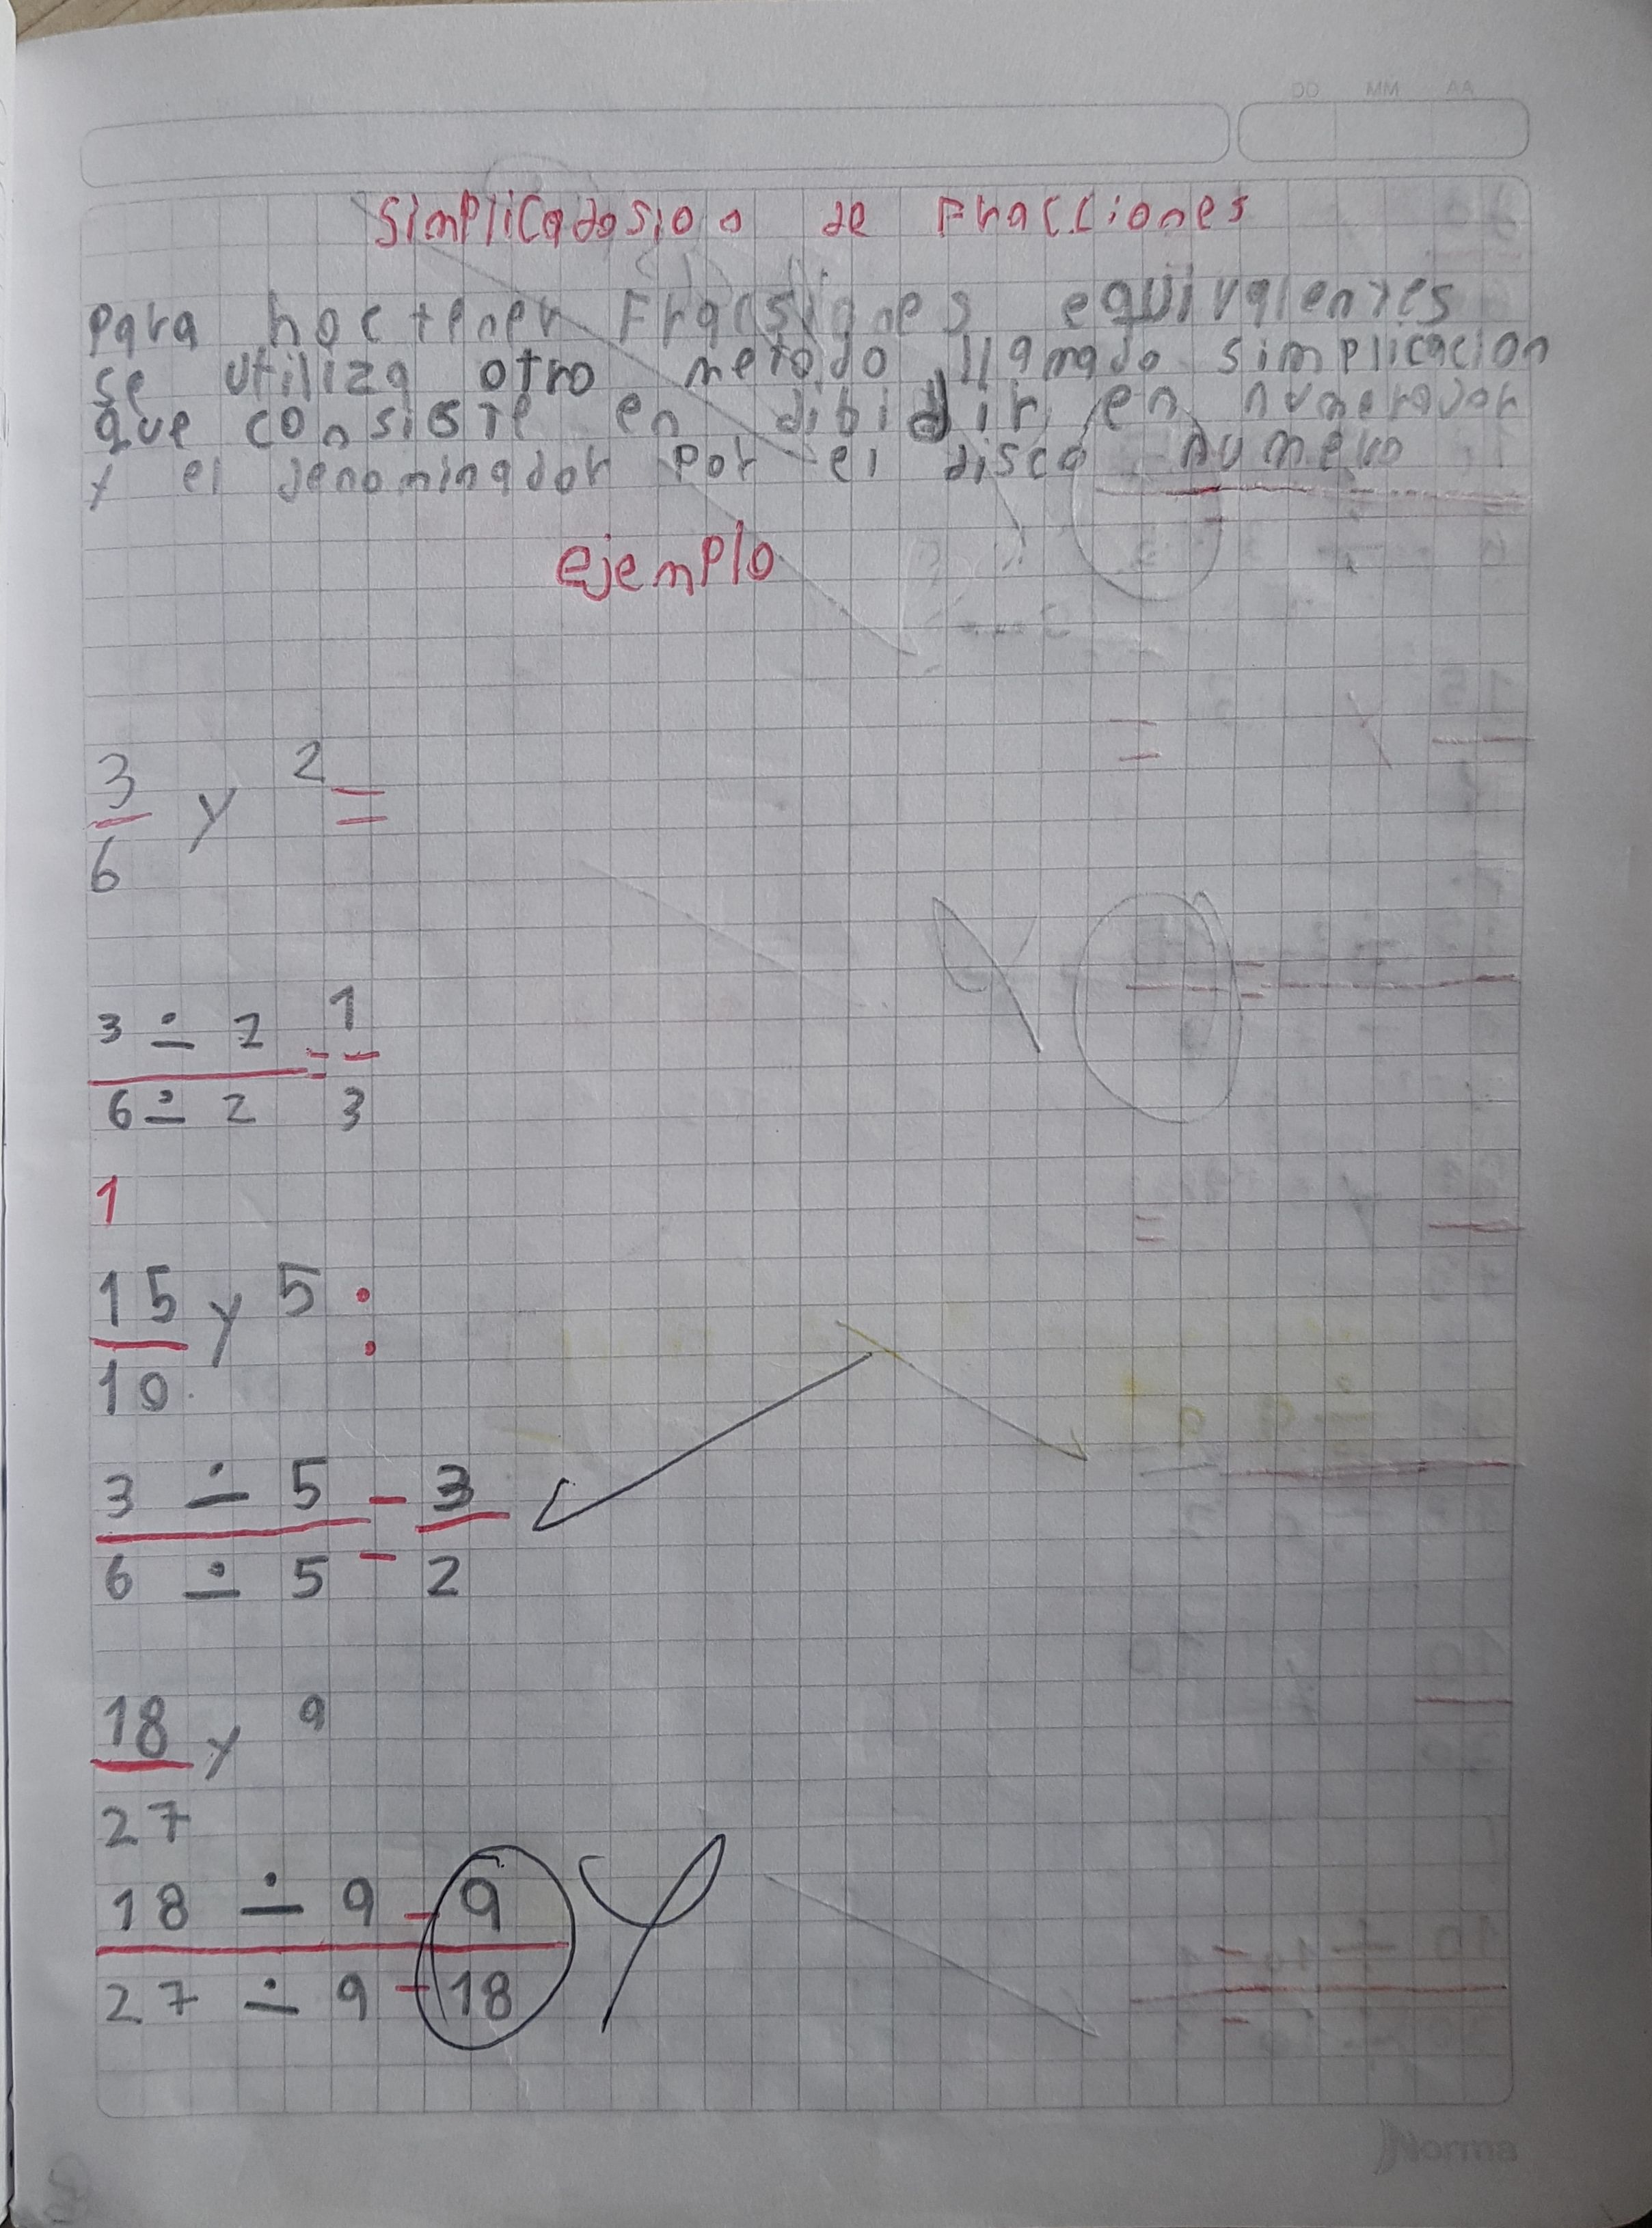 Simplicadosion de Fracciones
Para hoctener Fracsiones equivalentes
se utiliza otro metodo llamado simplicacion
que consiste en dibidir en numerador
y el denominador por el disco numero
ejemplo
3 y 2 =
6
3 ÷ 2 = 1
6 ÷ 2 3
1
15 y 5 :
10
3 ÷ 5 = 3
6 ÷ 5 2
18 y 9
27
18 ÷ 9 = 9
27 ÷ 9 18
Norma